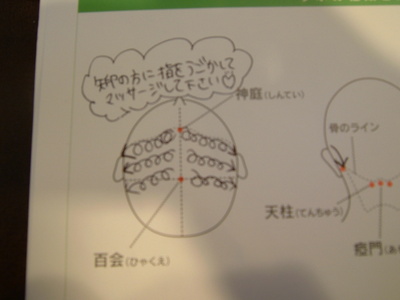 矢印の方に指をうごかして
マッサージして下さい♡
神庭(しんてい)
骨のライン
天柱(てんちゅう)
百会(ひゃくえ)
瘂門(あ